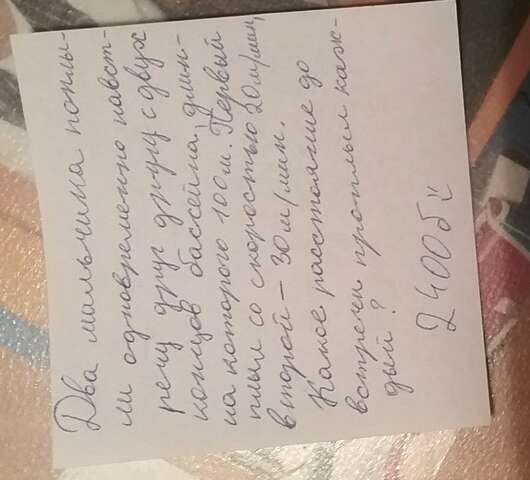 Два мальчика поплы-
ли одновременно навст-
речу друг другу с двух
концов бассейна, длин-
на которого 100 м. Первый
плыл со скоростью 20 м/мин,
второй – 30 м/мин.
Какое расстояние до
встречи проплыл каж-
дый?
2400